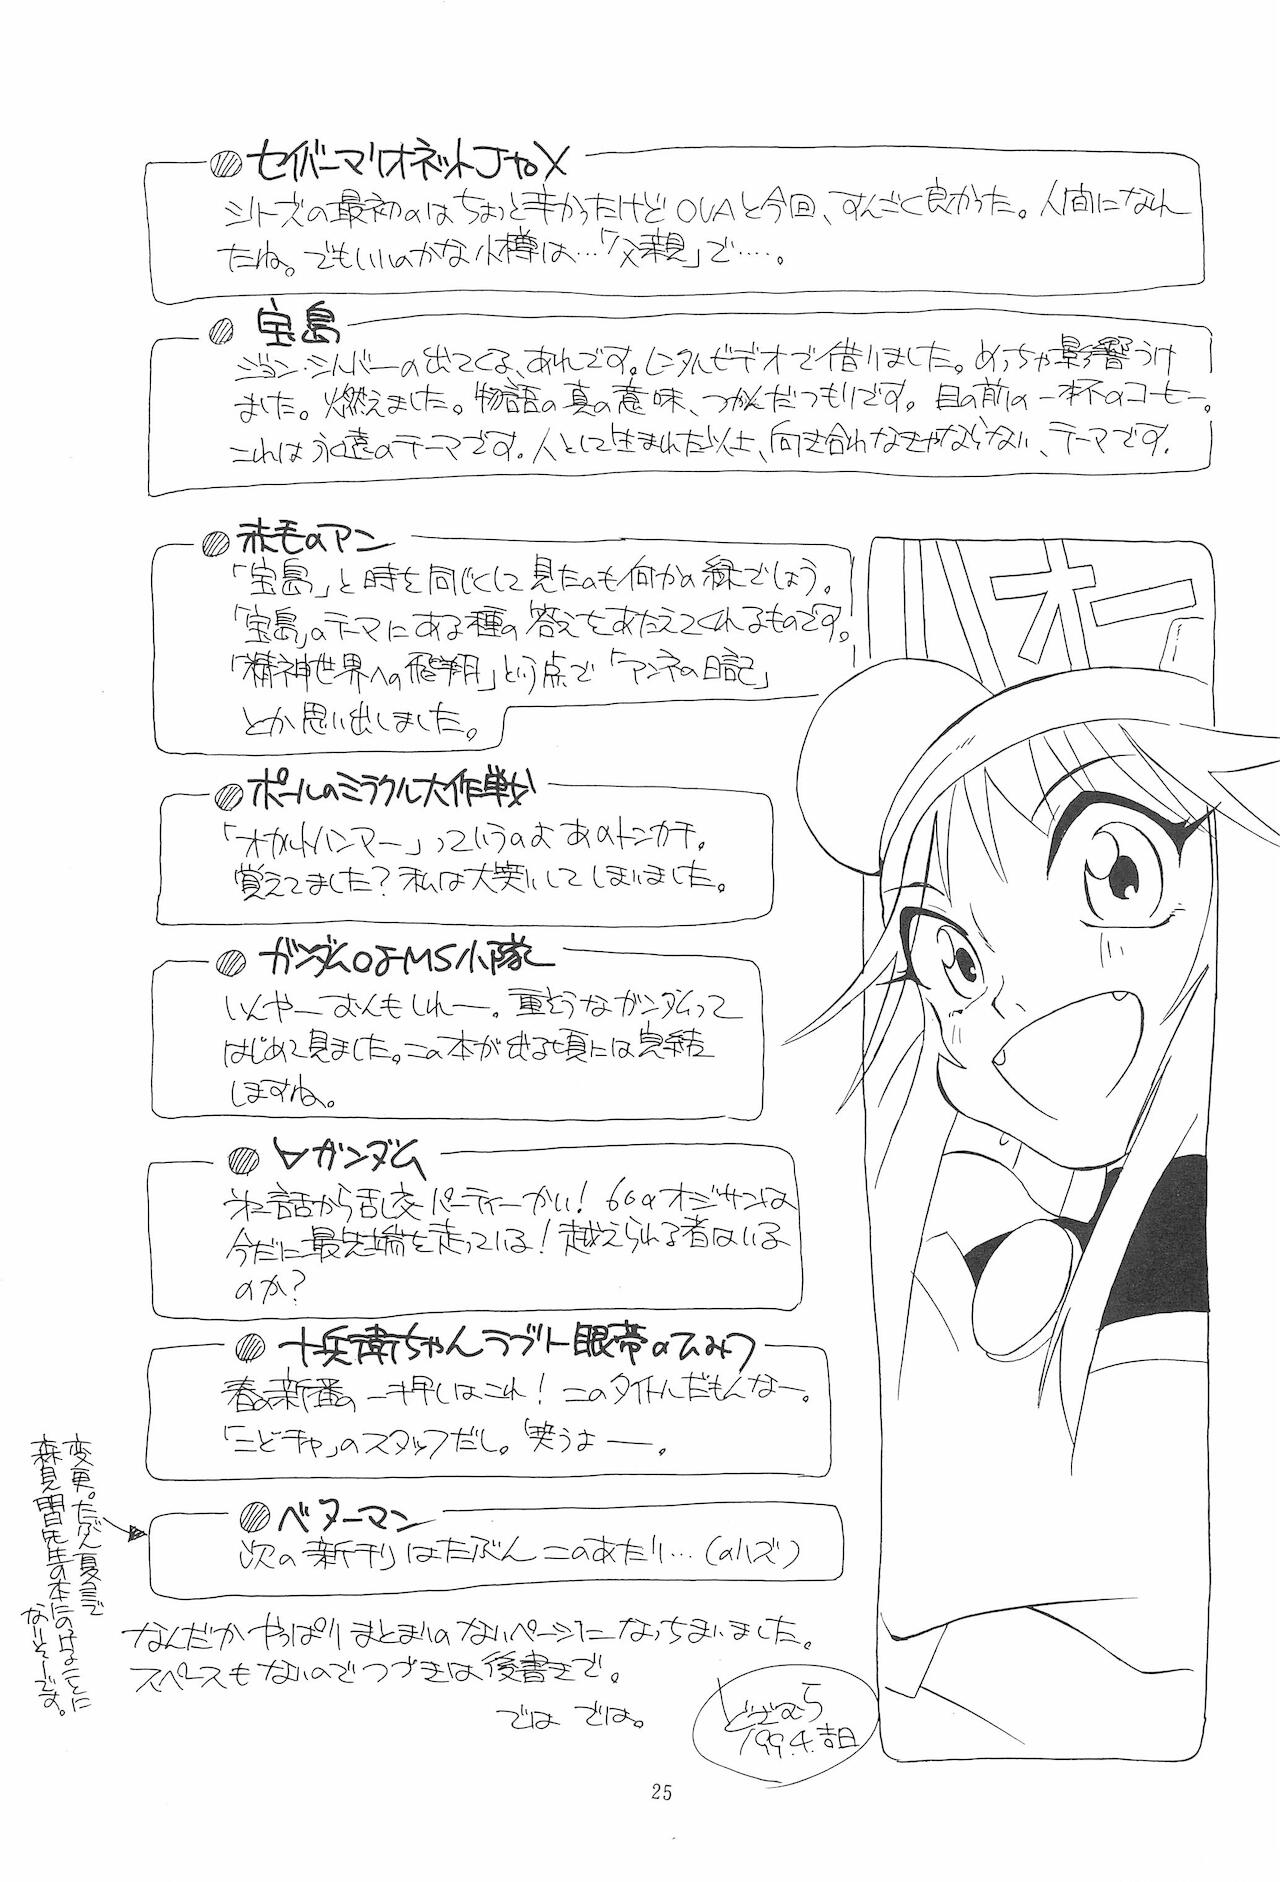 セイバーマリオネットJtoX
シリーズの最初のはちょっと辛かったけどOVAと今回、すんごく良かった。人間になれ
たね。でもいいのかな小樽は…「父親」で…。
宝島
ジョン・シルバーの出てくる、あれです。レンタルビデオで借りました。めっちゃ影響うけ
ました。燃えました。物語の真の意味、つかんだつもりです。目の前の一杯のコーヒー。
これは永遠のテーマです。人として生まれた以上、向き合わなきゃならない、テーマです。
赤毛のアン
「宝島」と時を同じくして見たのも何かの縁でしょう。
「宝島」のテーマにある種の答えをあたえてくれるものです。
「精神世界への飛翔」という点で「アンネの日記」
とか思い出しました。
ハオー
ポールのミラクル大作戦
「オカルトハンマー」っていうのよあのトンカチ。
覚えてました?私は大笑いしてしまいました。
ガンダム08MS小隊
いんやーおんもしれー。重そうなガンダムって
はじめて見ました。この本が出る頃には完結
しますね。
∀ガンダム
第2話から乱交パーティーかい!60のオジサンは
今だに最先端を走っている!越えられる者はいる
のか?
十兵衛ちゃんラブリー眼帯のひみつ
春の新番の一押しはこれ!このタイトルだもんなー。
「こどちゃ」のスタッフだし。笑うよー。
ベターマン
次の新刊はたぶんこのあたり…(のハズ)
変更。たぶん夏コミで
森見明日先生の本にのせることに
なりそーです。
なんだかやっぱりまとまりのないページになっちまいました。
スペースもないのでつづきは後書きで。
ではでは。
どざむら
'99.4.吉日
25